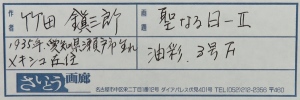 作家
竹田 鎮三郎
画題
聖なる日-Ⅱ
1935年、愛知県瀬戸市生れ
メキシコ在住
油彩、3号
さいとう画廊
名古屋市中区栄二丁目 ダイアパレス伏見401号 TEL(052)